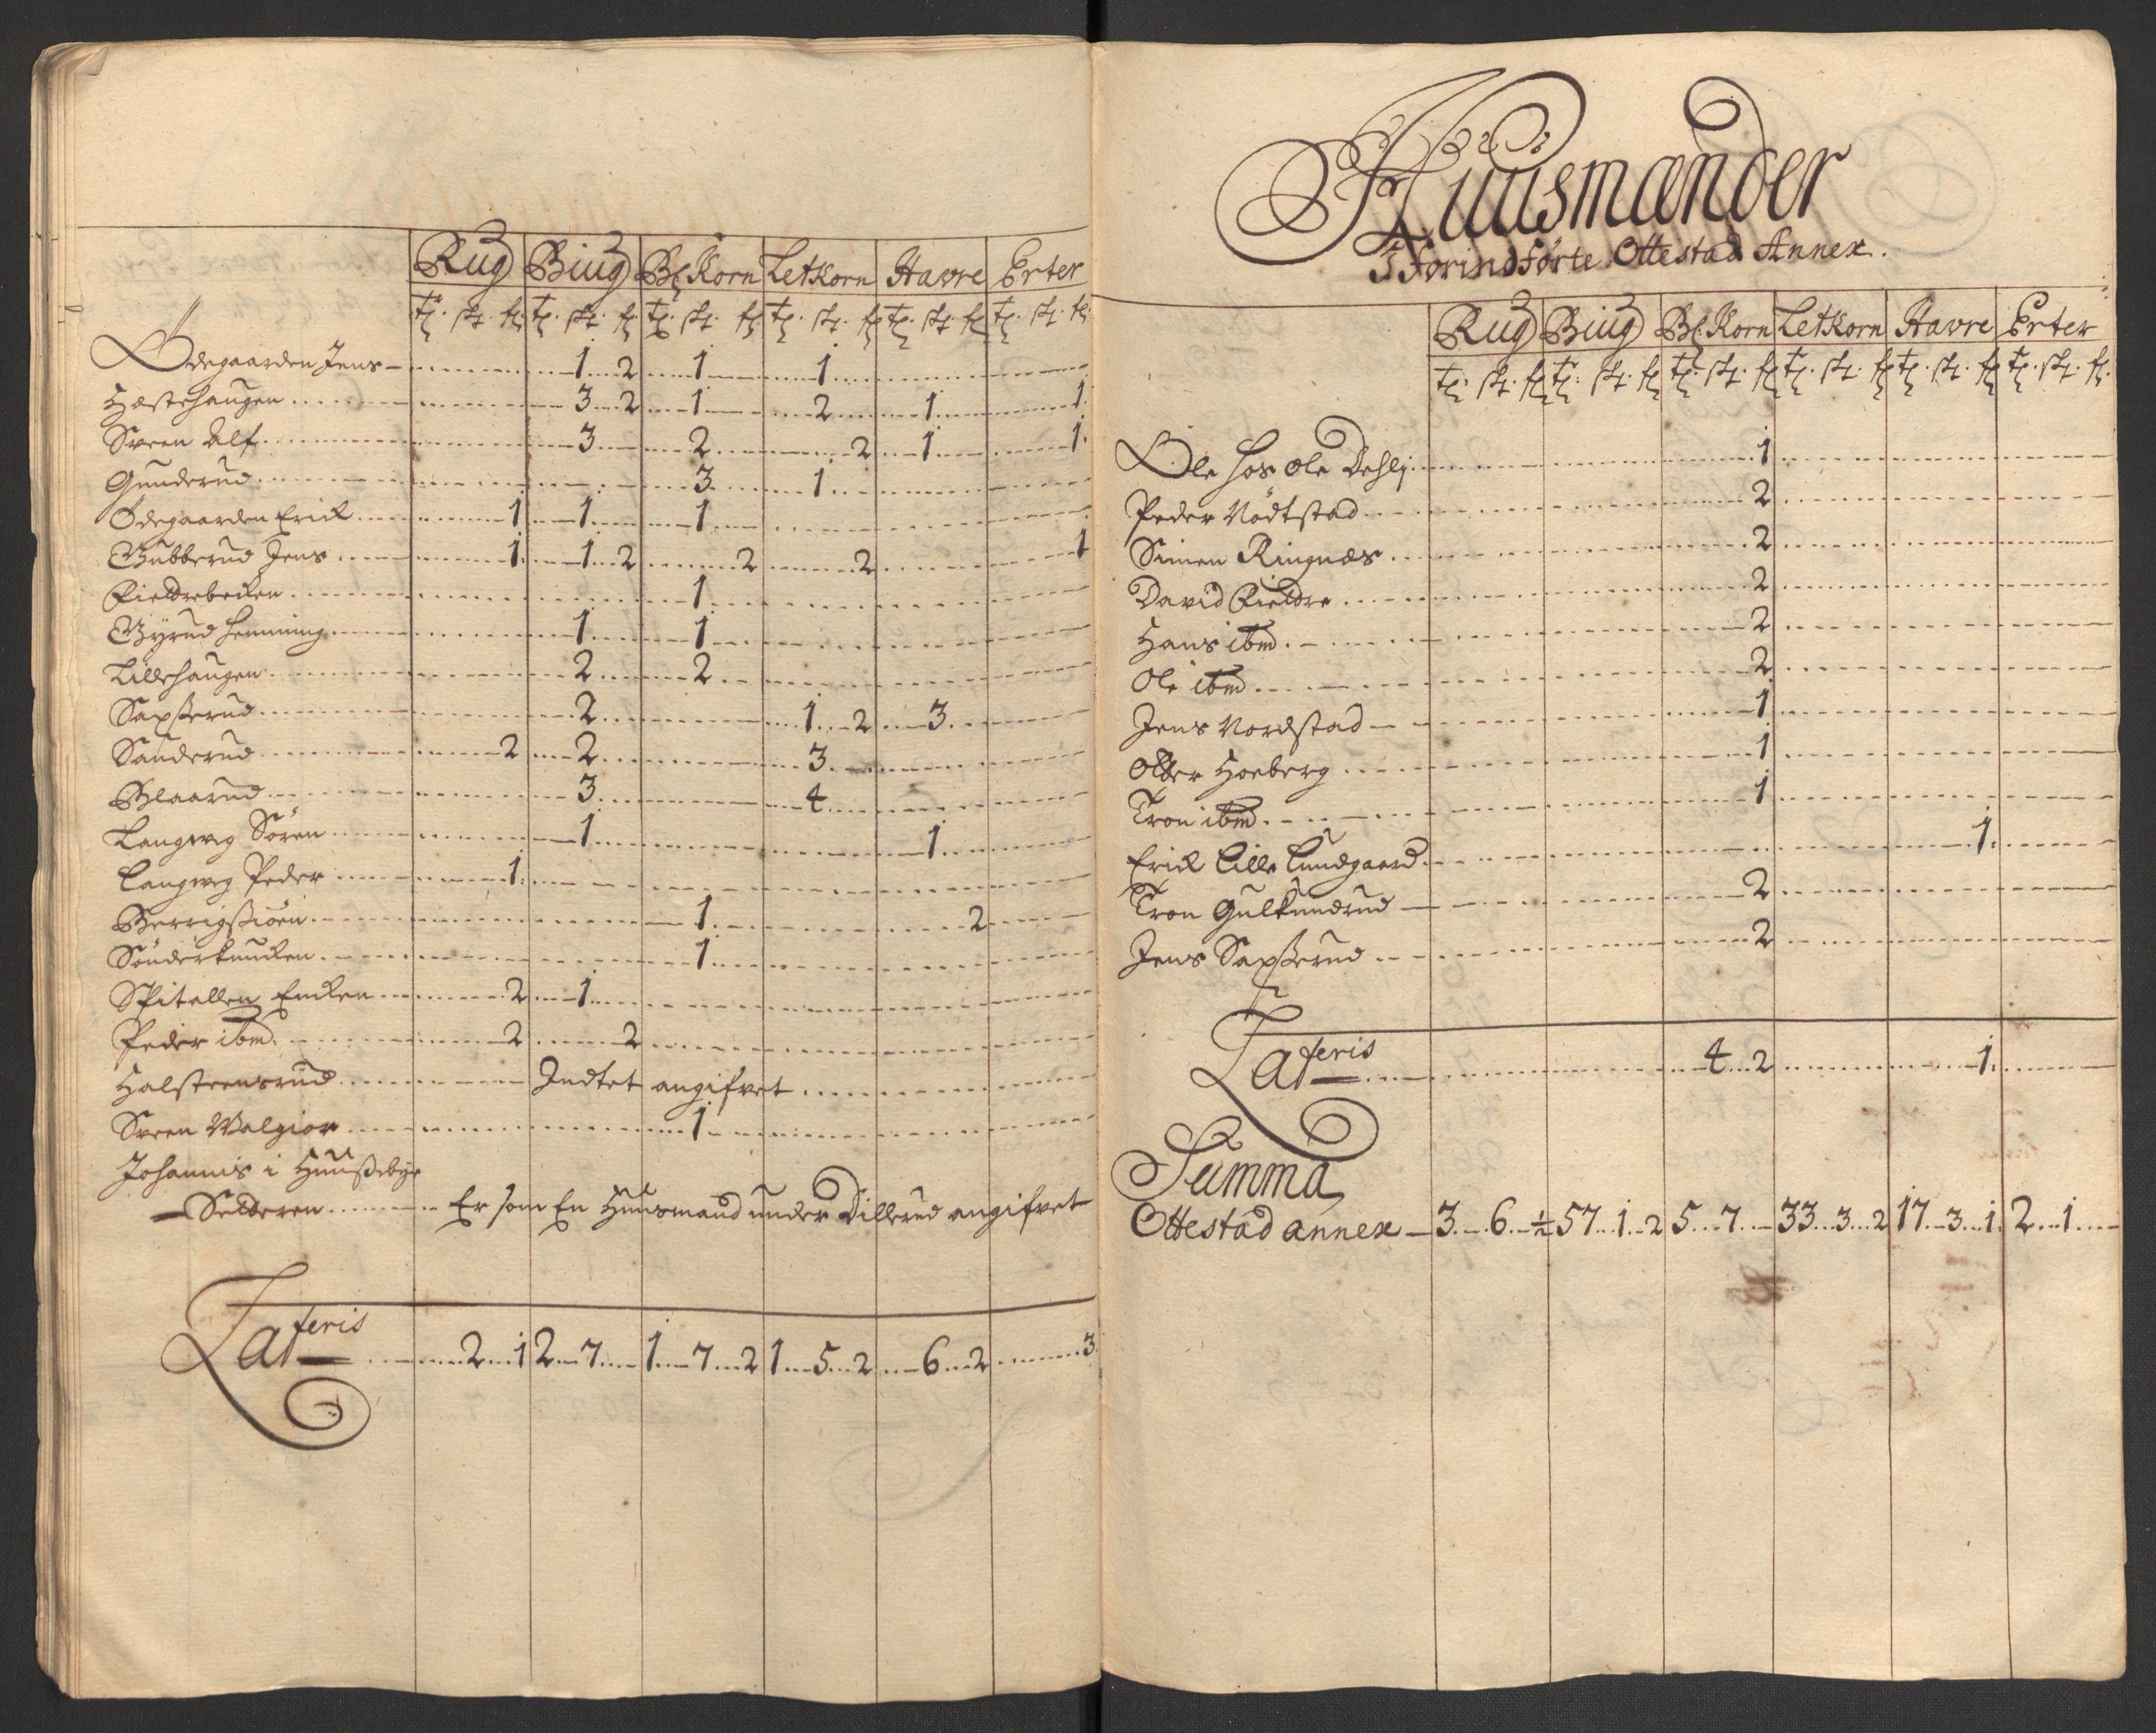 Rug Biug Bl Korn Letkorn Havre Erter
tr. sk. fr. tr. sk. fr. tr. sk. fr. tr. sk. fr. tr. sk. fr. tr. sk. fr.
Ødegaarden Jens 1 2 1 1
Hæstehaugen 3 2 1 2 1 1
Sveen Alf 3 2 2 1 1
Gunderud 3 1
Ødegaarden Erick 1 1 1
Gubberud Jens 1 1 2 2 2 1
Kieldrebecken 1
Byrud Hemming 1 1
Lillehaugen 2 2
Saxsserud 2 1 2 3
Sanderud 2 2 3
Blaarud 3 4
Langweg Sören 1 1
Langweg Peder 1
Berrigssiöen 1 2
Sönderknucken 1
Spitallen Encken 2 1
Peder ibm 2 2
Halsteensrud Indtet angifvet
Sveen Walgior 1
Johannis i Huusseby
Selderen Er som En Huusmand under Dillerud angifvet
Lateris 2 1 2 7 1 7 2 1 5 2 6 2 3
Huusmænder
I forindførte Ottestad Annex.
Rug Biug Bl. Korn Letkorn Havre Erter
tr. sk. fr. tr. sk. fr. tr. sk. fr. tr. sk. fr. tr. sk. fr. tr. sk. fr.
Ole hos Ole Dehlj 1
Peder Nödtstad 2
Simen Ringnæs 2
David Kieldre 2
Hans ibm 2
Ole ibm 2
Jens Nordstad 1
Olter Hoeberg 1
Tron ibm 1
Erick Lille Lundgaard 1
Tron Gulkundrud 2
Jens Saxsserud 2
Lateris 4 2 1
Summa
Ottestad annex 3 6 ½ 57 1 2 5 7 33 3 2 17 3 1 2 1